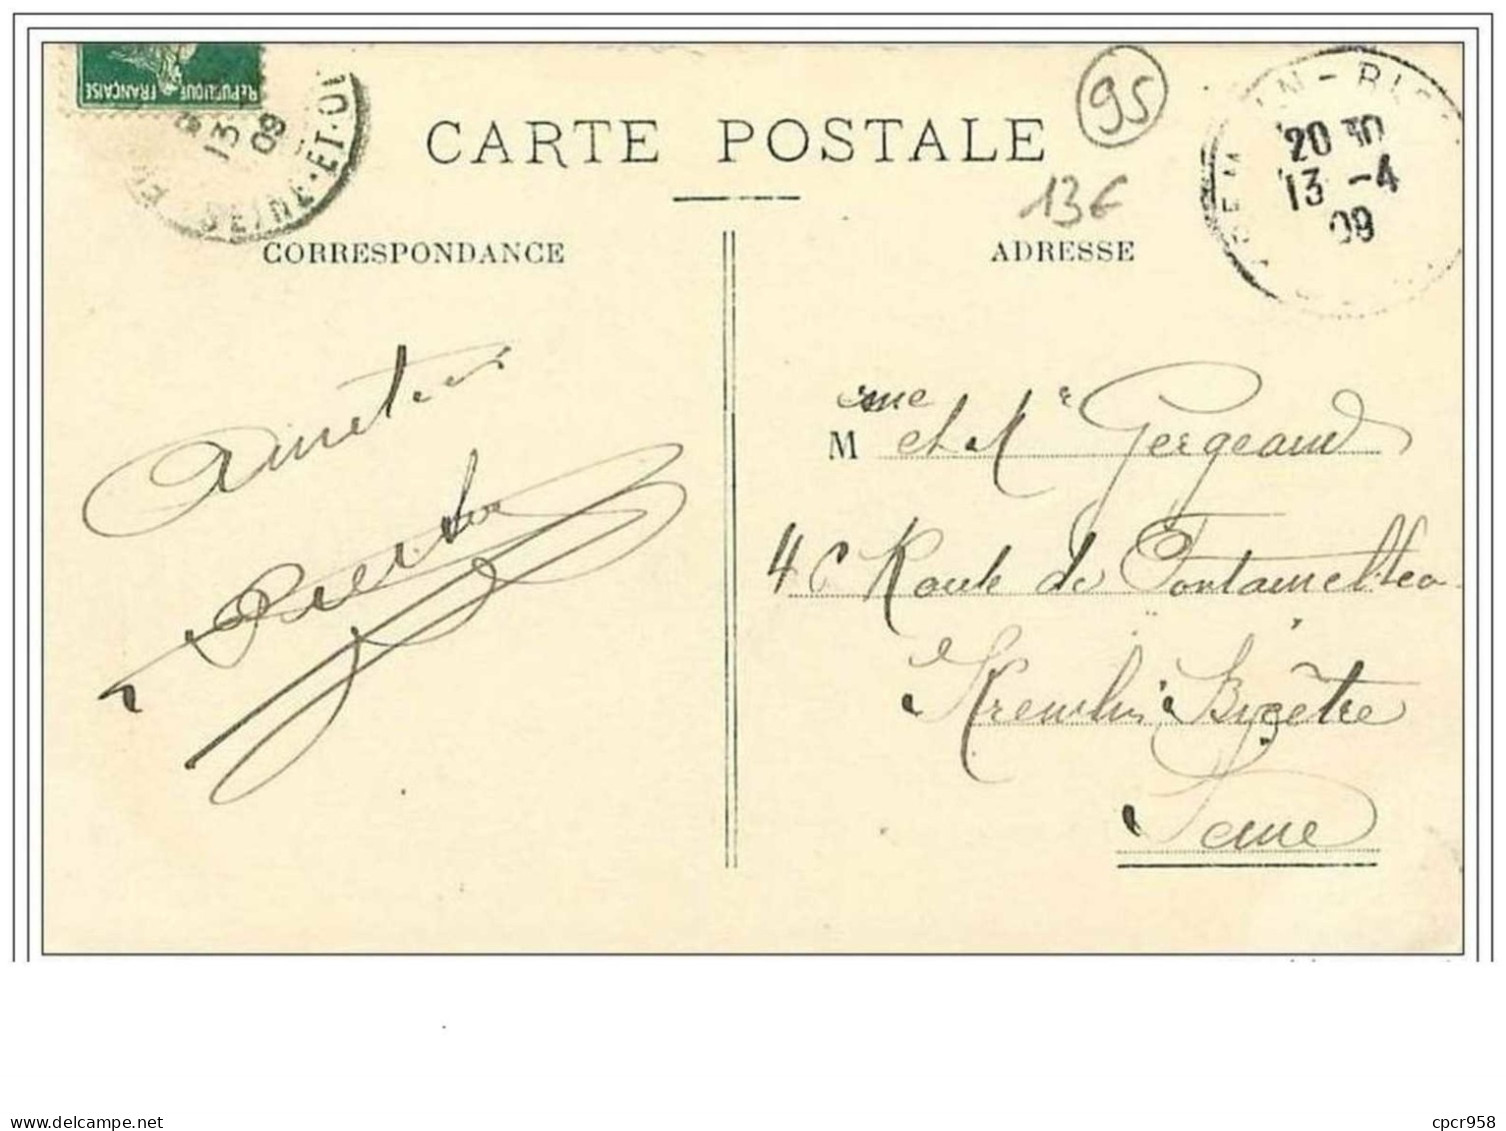 REPUBLIQUE FRANÇAISE
13
09
SEINE-ET-OI
CARTE POSTALE
95
13€
20 30
13 -4
09
CORRESPONDANCE
ADRESSE
Amitiés
Mme et Mr Gergeaud
4 Route de Fontainebleau
Kremlin Bicêtre
Seine
delcampe.net
cpcr958